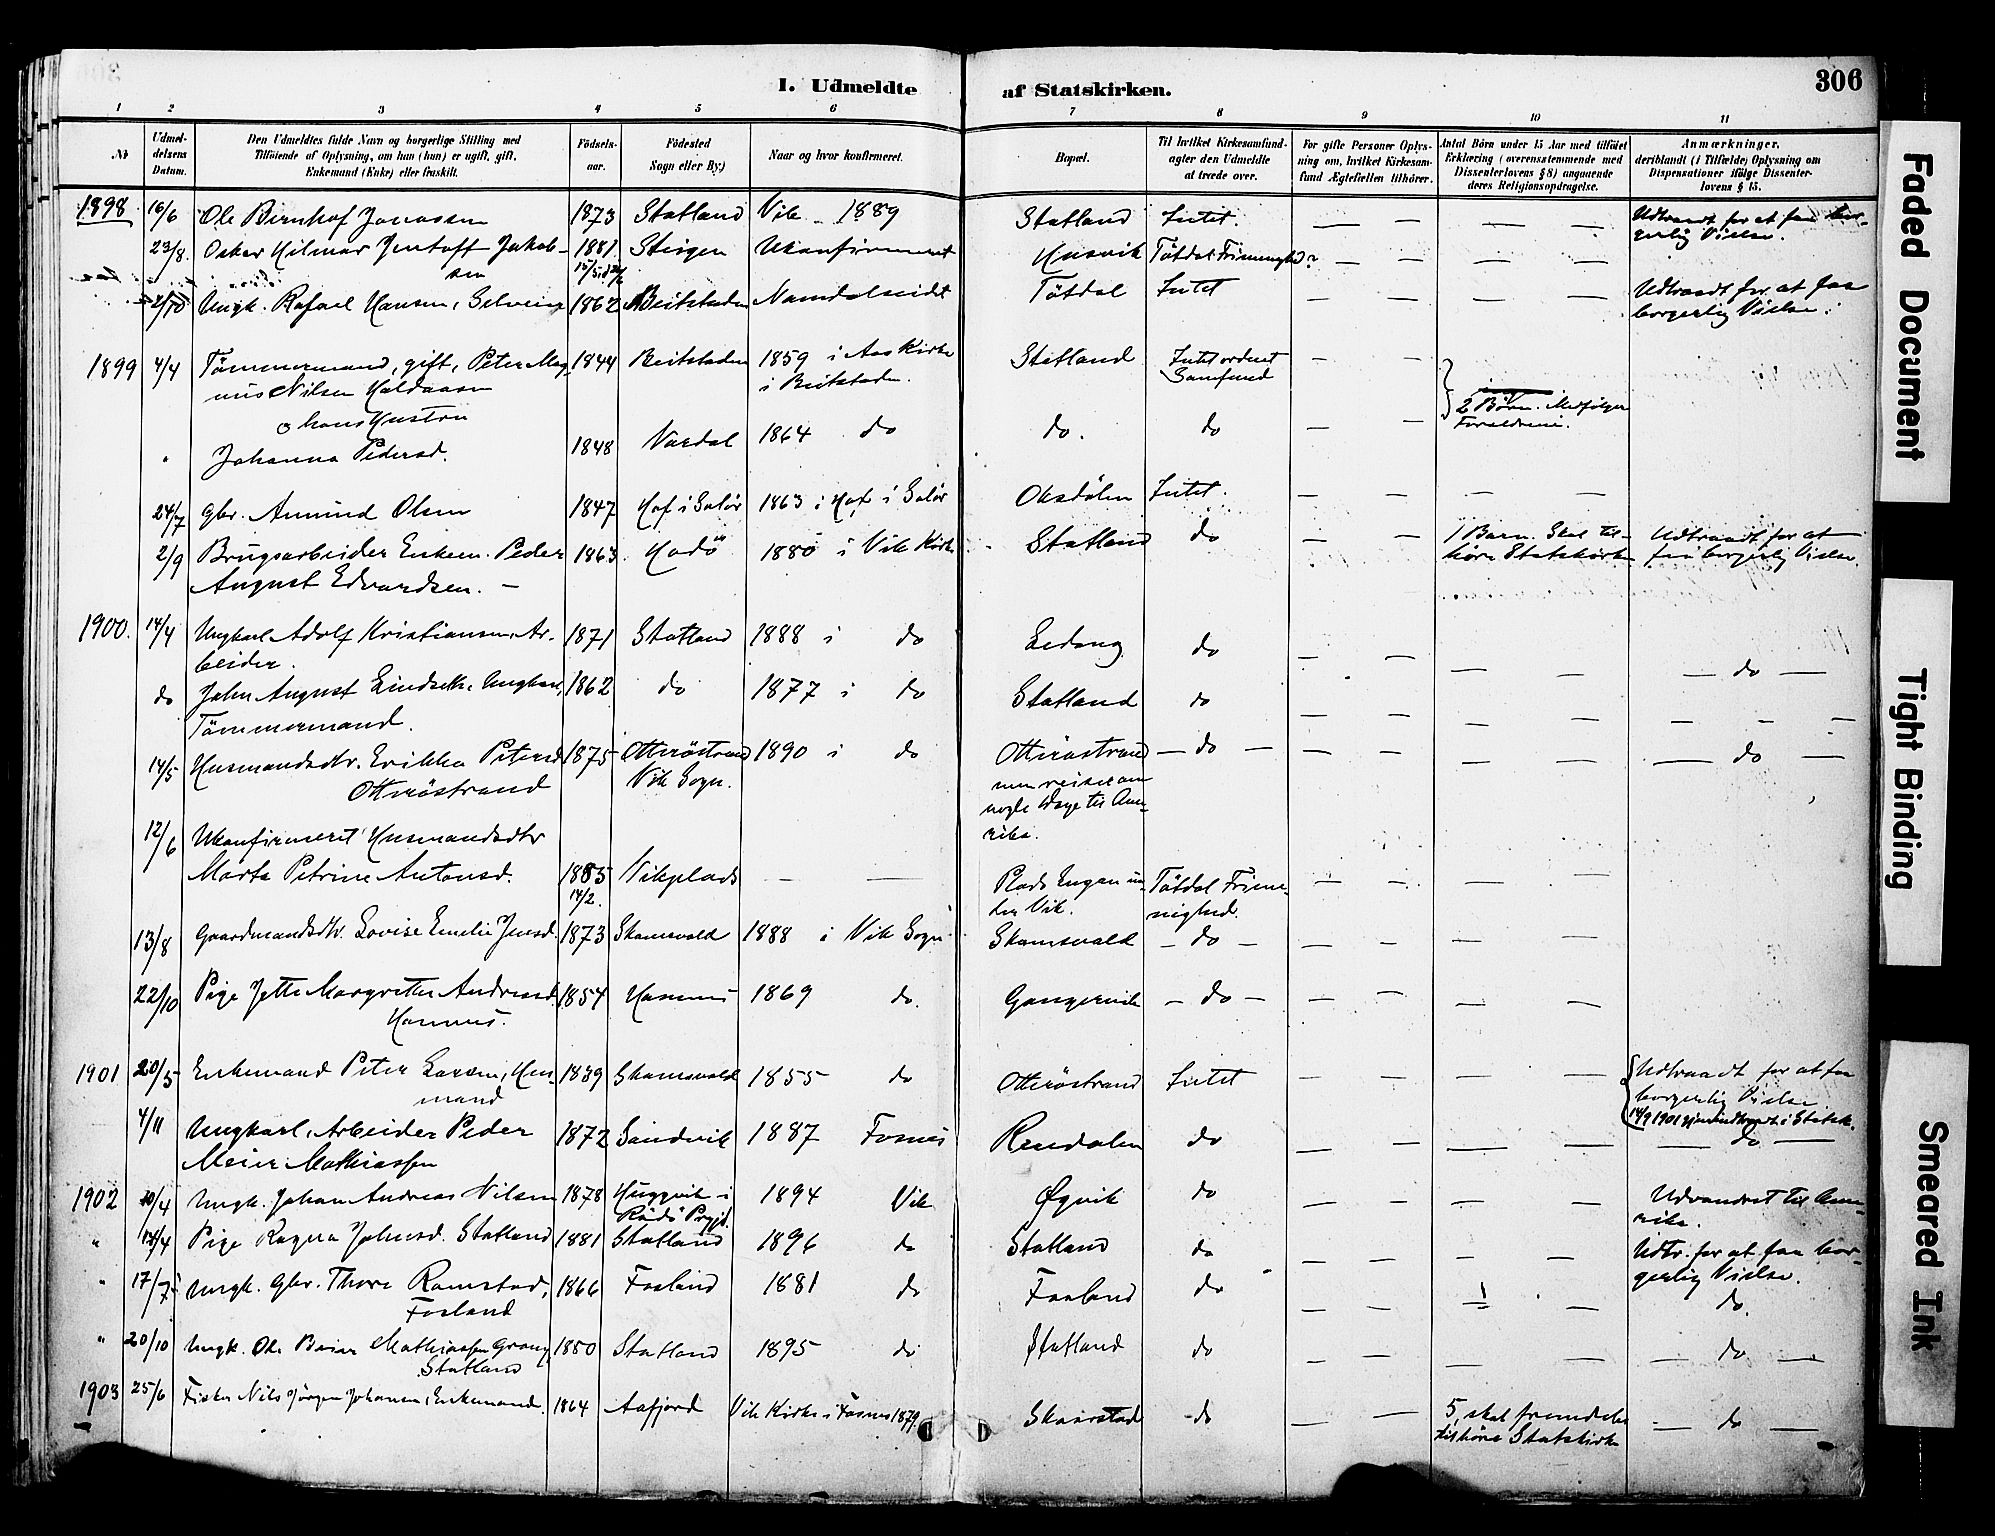 306
I. Udmeldte af Statskirken.
1 2 3 4 5 6 7 8 9 10 11
No
Udmel-
delsens
Datum.
Den Udmeldtes fulde Navn og borgerlige Stilling med
Tilføiende af Oplysning, om han (hun) er ugift, gift,
Enkemand (Enke) eller fraskilt.
Fødsels-
aar.
Fødested
Sogn eller By.)
Naar og hvor konfirmeret.
Bopæl.
Til hvilket Kirkesamfund-
agter den Udmeldte
at træde over.
For gifte Personer Oplys-
ning om, hvilket Kirkesam-
fund Ægtefællen tilhører.
Antal Børn under 15 Aar med tilføiet
Erklæring (overensstemmende med
Dissenterlovens § 8) angaaende
deres Religionsopdragelse.
Anmærkninger,
deriblandt (i Tilfælde) Oplysning om
Dispensationer ifølge Dissenter-
lovens § 15.
1898 16/6 Ole Bernhof Jonassen 1873 Statland Vik - 1889 Statland Intet. — — — — Udtraadt for at faa bor-
gerlig Vielse.
23/8. Oskar Hilmar Jentoft Jakob- 1881 Steigen Ukonfirmeret Husvik Tøtdal Frimenighed? — — — —
sen
2/10 Ungk. Rafael Hansen, Selveier 1862 Beitstaden Namdalseidet Tøtdal Intet — — — — Udtraadt for at faa
borgerlig Vielse.
1899 4/4 Tømmermand, gift, Peter Mag- 1844 Beitstaden 1859 i Aas Kirke Statland Intet ordnet — —
nus Nilsen Haldaasen i Beitstaden. Samfund
o hans Hustru 2 Børn. Medfølger
Forældrene.
" Johanna Pedersd. 1848 Værdal 1864 do do. do — —
24/7 Gbr. Amund Olsen 1847 Hof i Solør 1863 i Hof i Solør Oksdølen Intet. — — — —
2/9 Brugsarbeider Enkem. Peder 1863 Hodø 1880 i Vik Kirke Statland do — — 1 Barn. Skal til- Udtraadt for at
August Edvardsen. — høre Statskirken faa borgerlig Vielse.
1900. 14/4 Ungkarl Adolf Kristiansen, Ar- 1871 Statland 1888 i do Ledang do — — — — — do —
beider.
do John August Lindseth, Ungkarl, 1862 do 1877 i do Statland do — — — — — — —
Tømmermand.
14/5 Husmandsdtr. Erikka Petersd. 1875 Otterøstrand 1890 i do Otterøstrand — do — — — — — — do —
Otterøstrand Vik Sogn. men reiser om
nogle Dage til Ame-
rika.
12/6 Ukonfirmeret Husmandsdtr
Marta Petrine Antonsd. 1885 Vikplads — — Plads Engan un- Tøtdal Frime- — — — —
14/2. der Vik. nighed.
13/8 Gaardmandsdtr. Lovise Emelie Jensd. 1873 Skamsvald 1888 i Vik Sogn Skamsvald — do — — — — —
22/10 Pige Jette Margrethe Andreasd. 1854 Hasnes 1869 do. Gangervik — do — — — — —
Hasnes.
1901 20/5 Enkemand Peter Larsen, Hus- 1839 Skamsvald 1855 do Otterøstrand Intet — — — — Udtraadt for at faa
mand borgerlig Vielse
14/9 1901 gjenindtraadt i Statsk.
4/11 Ungkarl, Arbeider Peder 1872 Sandvik 1887 Fosnes Rendalen do — — — — — do —
Meier Mathiassen
1902 20/4 Ungk. Johan Andreas Nilsen 1878 Huggvik i 1894 Vik Øgvik do — — — — Udvandret til Ame-
Rødø Prgjd. rika.
" 18/4 Pige Ragna Johnsd. Statland 1881 Statland 1896 do Statland do — — — — Udtr. for at faa bor-
gerlig Vielse.
" 17/7 Ungk. Gbr. Thore Ramstad, 1866 Fosland 1881 do Fosland do — — 1 — do.
Fosland
" 20/10 Ungk. Ole Beier Mathiassen Grong 1880 Statland 1895 do Statland do — — — — — do —
Statland
1903 25/6 Fisker Nils Jørgen Johansen, Enkemand. 1864 Aafjord Vik Kirke i Fosnes 1879. Skaarstad do — — 5, skal fremdeles — do —
tilhøre Statskirken
Faded Document
Tight Binding
Smeared Ink